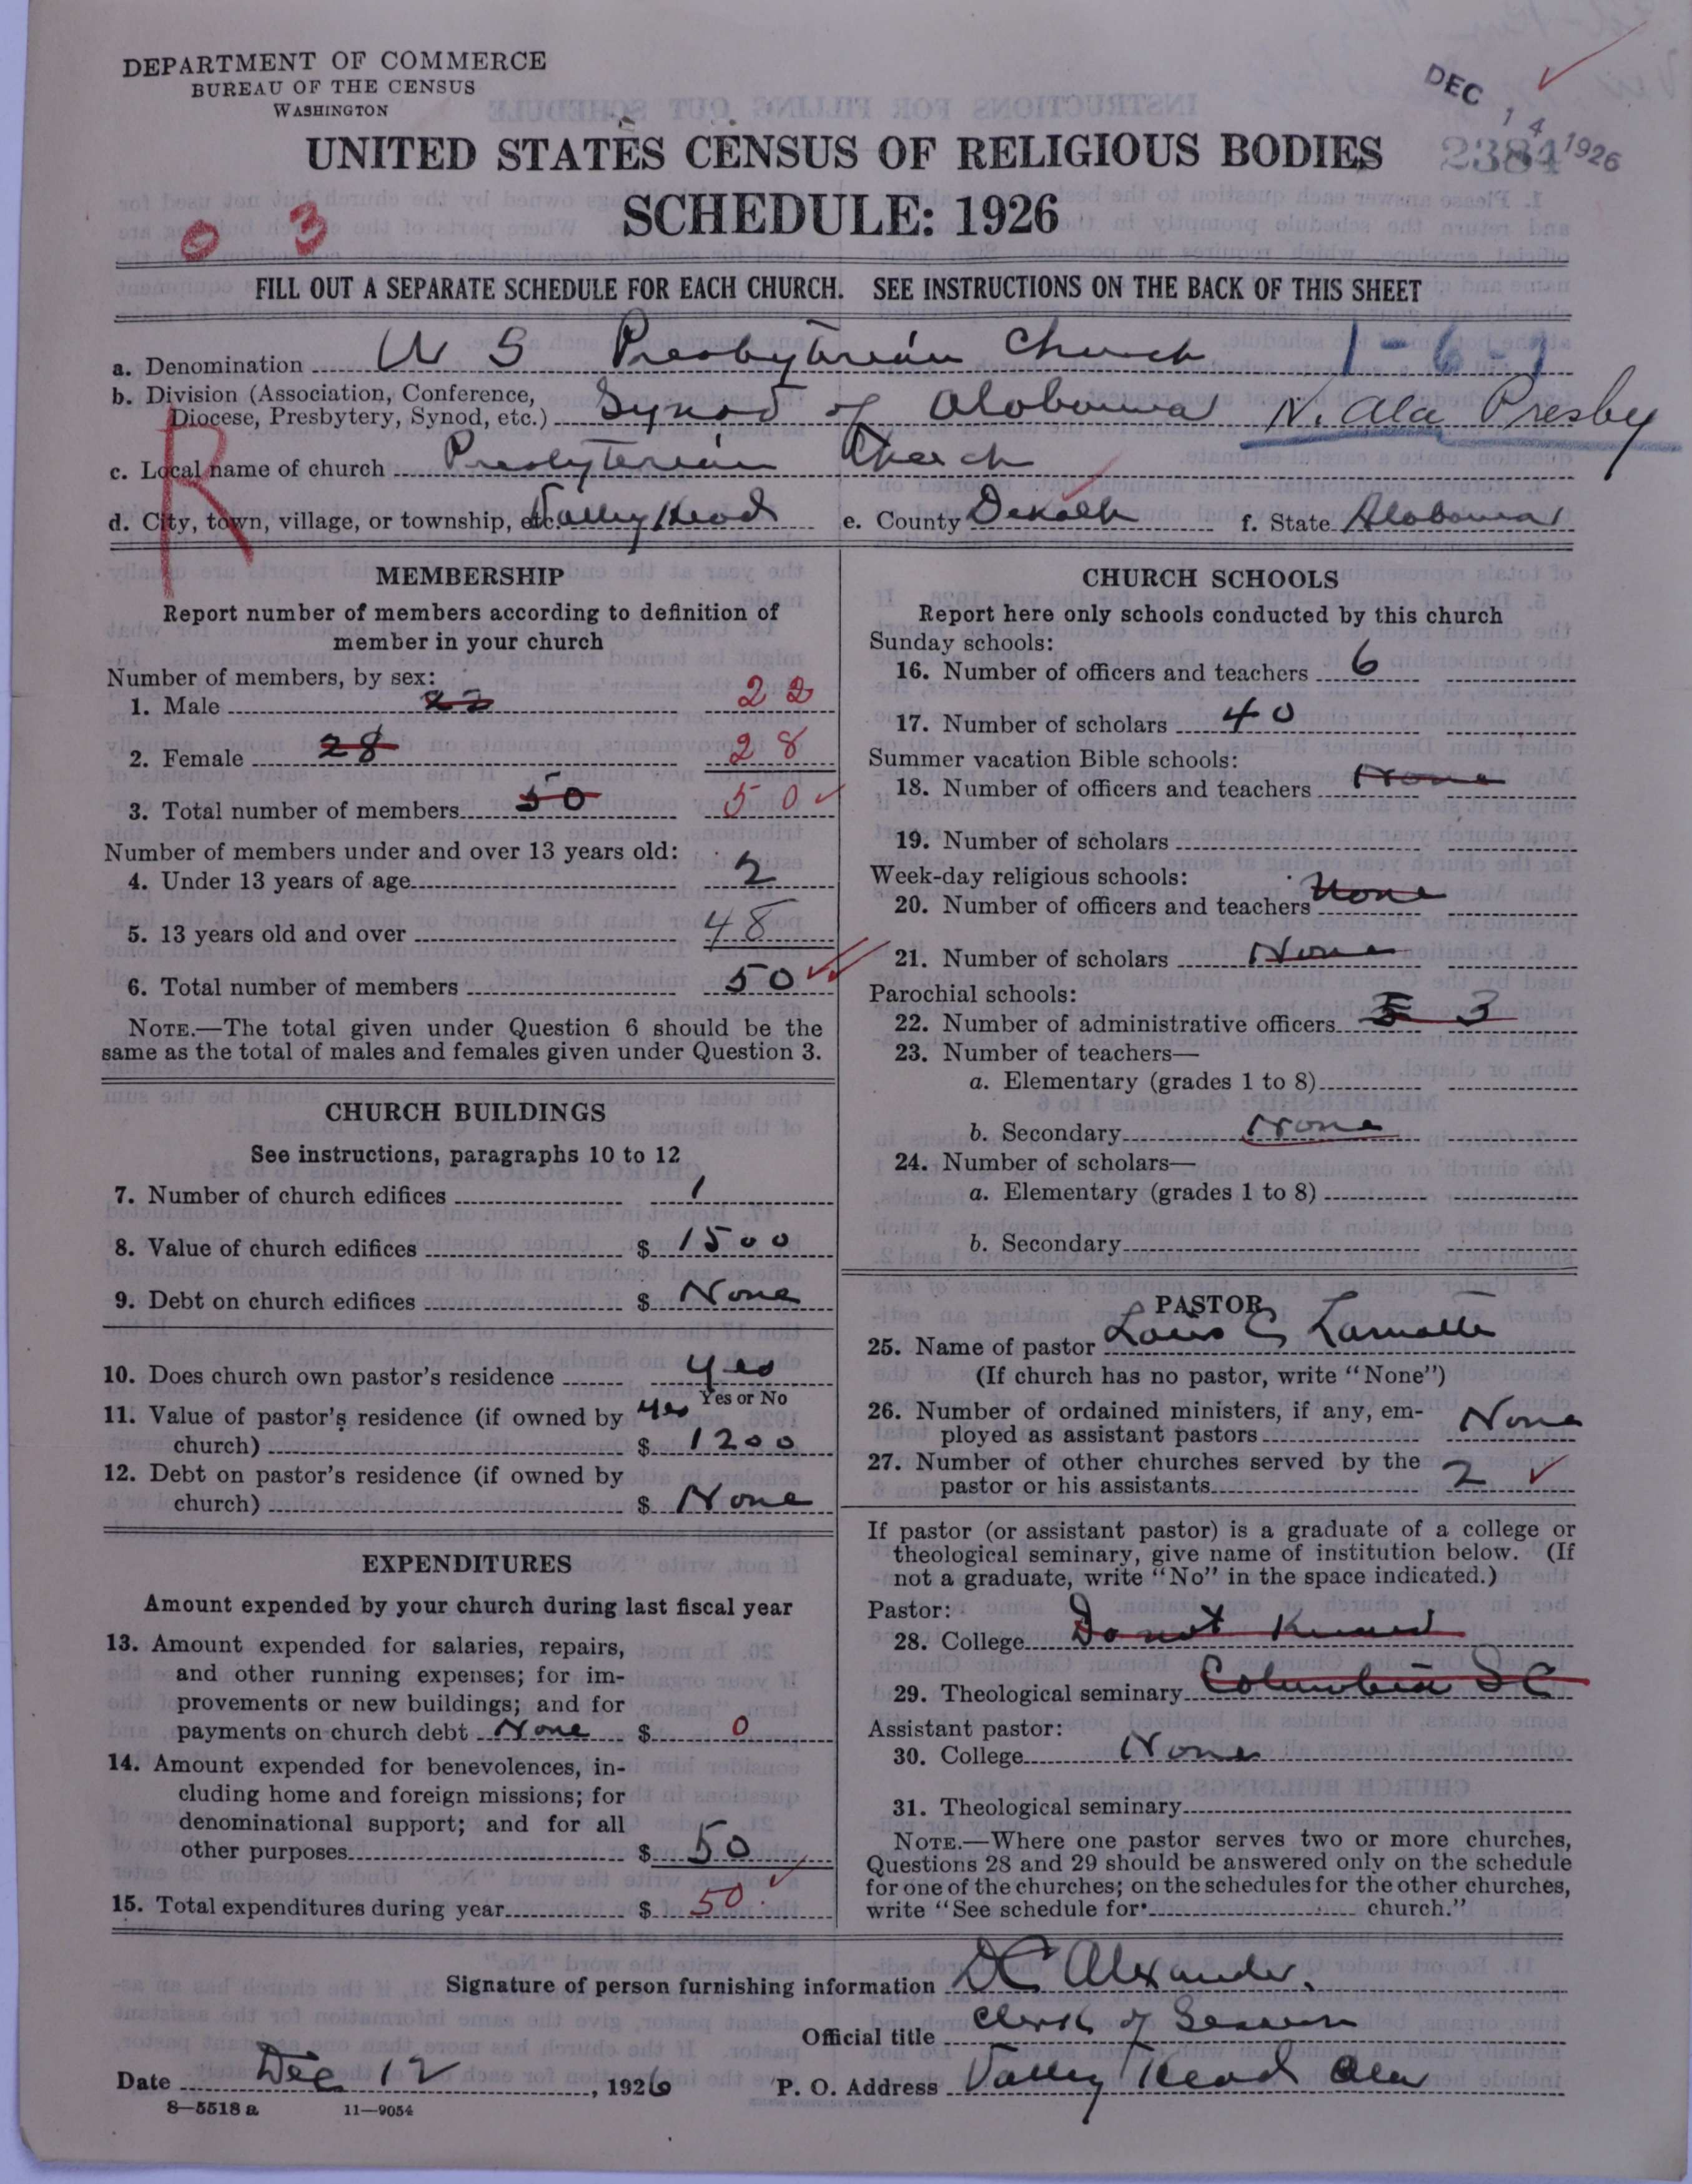 DEPARTMENT OF COMMERCE
BUREAU OF THE CENSUS
WASHINGTON
DEC 14 1926
2384
UNITED STATES CENSUS OF RELIGIOUS BODIES
SCHEDULE: 1926
0 3
FILL OUT A SEPARATE SCHEDULE FOR EACH CHURCH. SEE INSTRUCTIONS ON THE BACK OF THIS SHEET
a. Denomination U S Presbyterian Church 1-6-
b. Division (Association, Conference,
Diocese, Presbytery, Synod, etc.) Synod of Alabama N. Ala Presby
R
c. Local name of church Presbyterian Church
d. City, town, village, or township, etc. Valley Head e. County Dekalb f. State Alabama
MEMBERSHIP
Report number of members according to definition of
member in your church
Number of members, by sex:
1. Male 22 22
2. Female 28 28
3. Total number of members 50 50
Number of members under and over 13 years old:
4. Under 13 years of age 2
5. 13 years old and over 48
6. Total number of members 50
NOTE.—The total given under Question 6 should be the
same as the total of males and females given under Question 3.
CHURCH BUILDINGS
See instructions, paragraphs 10 to 12
7. Number of church edifices 1
8. Value of church edifices $ 1500
9. Debt on church edifices $ None
10. Does church own pastor's residence yes
Yes or No
11. Value of pastor's residence (if owned by yes
church) $ 1200
12. Debt on pastor's residence (if owned by
church) $ None
EXPENDITURES
Amount expended by your church during last fiscal year
13. Amount expended for salaries, repairs,
and other running expenses; for im-
provements or new buildings; and for
payments on church debt None $ 0
14. Amount expended for benevolences, in-
cluding home and foreign missions; for
denominational support; and for all
other purposes $ 50
15. Total expenditures during year $ 50
CHURCH SCHOOLS
Report here only schools conducted by this church
Sunday schools:
16. Number of officers and teachers 6
17. Number of scholars 40
Summer vacation Bible schools:
18. Number of officers and teachers None
19. Number of scholars
Week-day religious schools:
20. Number of officers and teachers None
21. Number of scholars None
Parochial schools:
22. Number of administrative officers 5 3
23. Number of teachers—
a. Elementary (grades 1 to 8)
b. Secondary None
24. Number of scholars—
a. Elementary (grades 1 to 8)
b. Secondary
PASTOR
25. Name of pastor Louis C Lamotte
(If church has no pastor, write "None")
26. Number of ordained ministers, if any, em-
ployed as assistant pastors None
27. Number of other churches served by the
pastor or his assistants 2
If pastor (or assistant pastor) is a graduate of a college or
theological seminary, give name of institution below. (If
not a graduate, write "No" in the space indicated.)
Pastor:
28. College Do not Know
29. Theological seminary Columbia SC
Assistant pastor:
30. College None
31. Theological seminary
NOTE.—Where one pastor serves two or more churches,
Questions 28 and 29 should be answered only on the schedule
for one of the churches; on the schedules for the other churches,
write "See schedule for church."
Signature of person furnishing information D C Alexander.
Official title Clerk of Session
Date Dec 12, 1926 P. O. Address Valley Head Ala
8—5518 a 11—9054